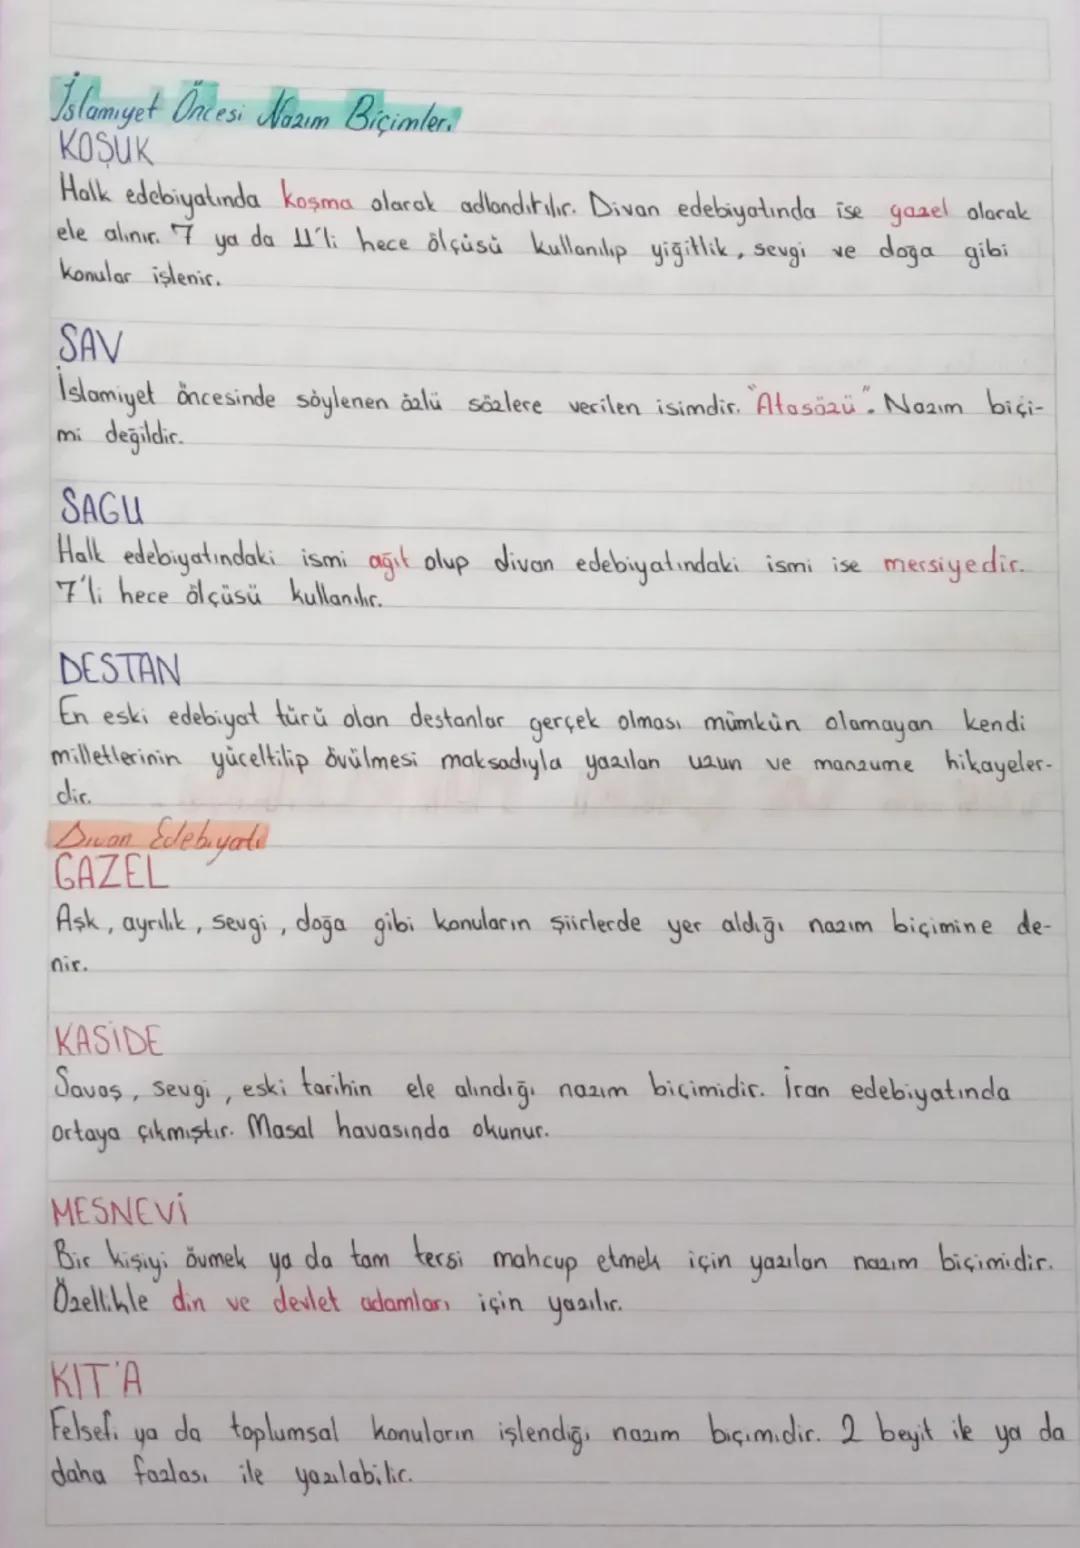 İslamiyet Öncesi Nazım Biçimleri
KOŞUK
Halk edebiyatında koşma olarak adlandırılır. Divan edebiyatında ise gazel olarak
ele alınır. 7 ya da 11'li hece ölçüsü kullanılıp yiğitlik, sevgi ve doğa gibi
konular işlenir.
SAV
İslamiyet öncesinde söylenen özlü sözlere verilen isimdir. "Atasözü". Nazım biçi-
mi değildir.
SAGU
Halk edebiyatındaki ismi ağıt olup divan edebiyatındaki ismi ise mersiyedir.
7'li hece ölçüsü kullanılır.
DESTAN
En eski edebiyat türü olan destanlar gerçek olması mümkün olamayan kendi
milletlerinin yüceltilip övülmesi maksadıyla yazılan uzun ve manzume hikayeler-
dir.
Divan Edebiyatı
GAZEL
Aşk, ayrılık, sevgi, doğa gibi konuların şiirlerde yer aldığı nazım biçimine de-
nir.
KASİDE
Savaş, sevgi, eski tarihin ele alındığı nazım biçimidir. İran edebiyatında
ortaya çıkmıştır. Masal havasında okunur.
MESNEVİ
Bir kişiyi övmek ya da tam tersi mahcup etmek için yazılan nazım biçimidir.
Özellikle din ve devlet adamları için yazılır.
KIT'A
Felsefi ya da toplumsal konuların işlendiği nazım biçimidir. 2 beyit ile ya da
daha fazlası ile yazılabilir.